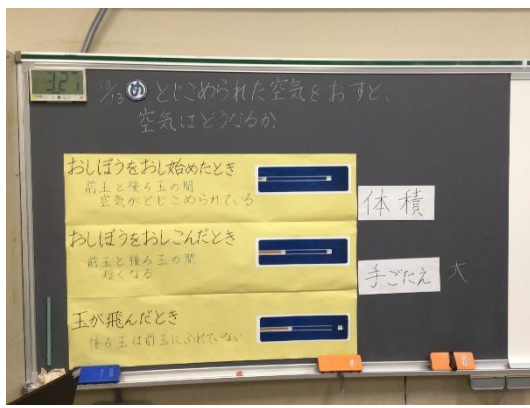 3:27
12/13 め とじこめられた空気をおすと、
空気はどうなるか。
おしぼうをおし始めたとき
前玉と後ろ玉の間
空気がとじこめられている
体積
おしぼうをおしこんだとき
前玉と後ろ玉の間
短くなる
手ごたえ 大
玉が飛んだとき
後ろ玉は前玉にふれていない